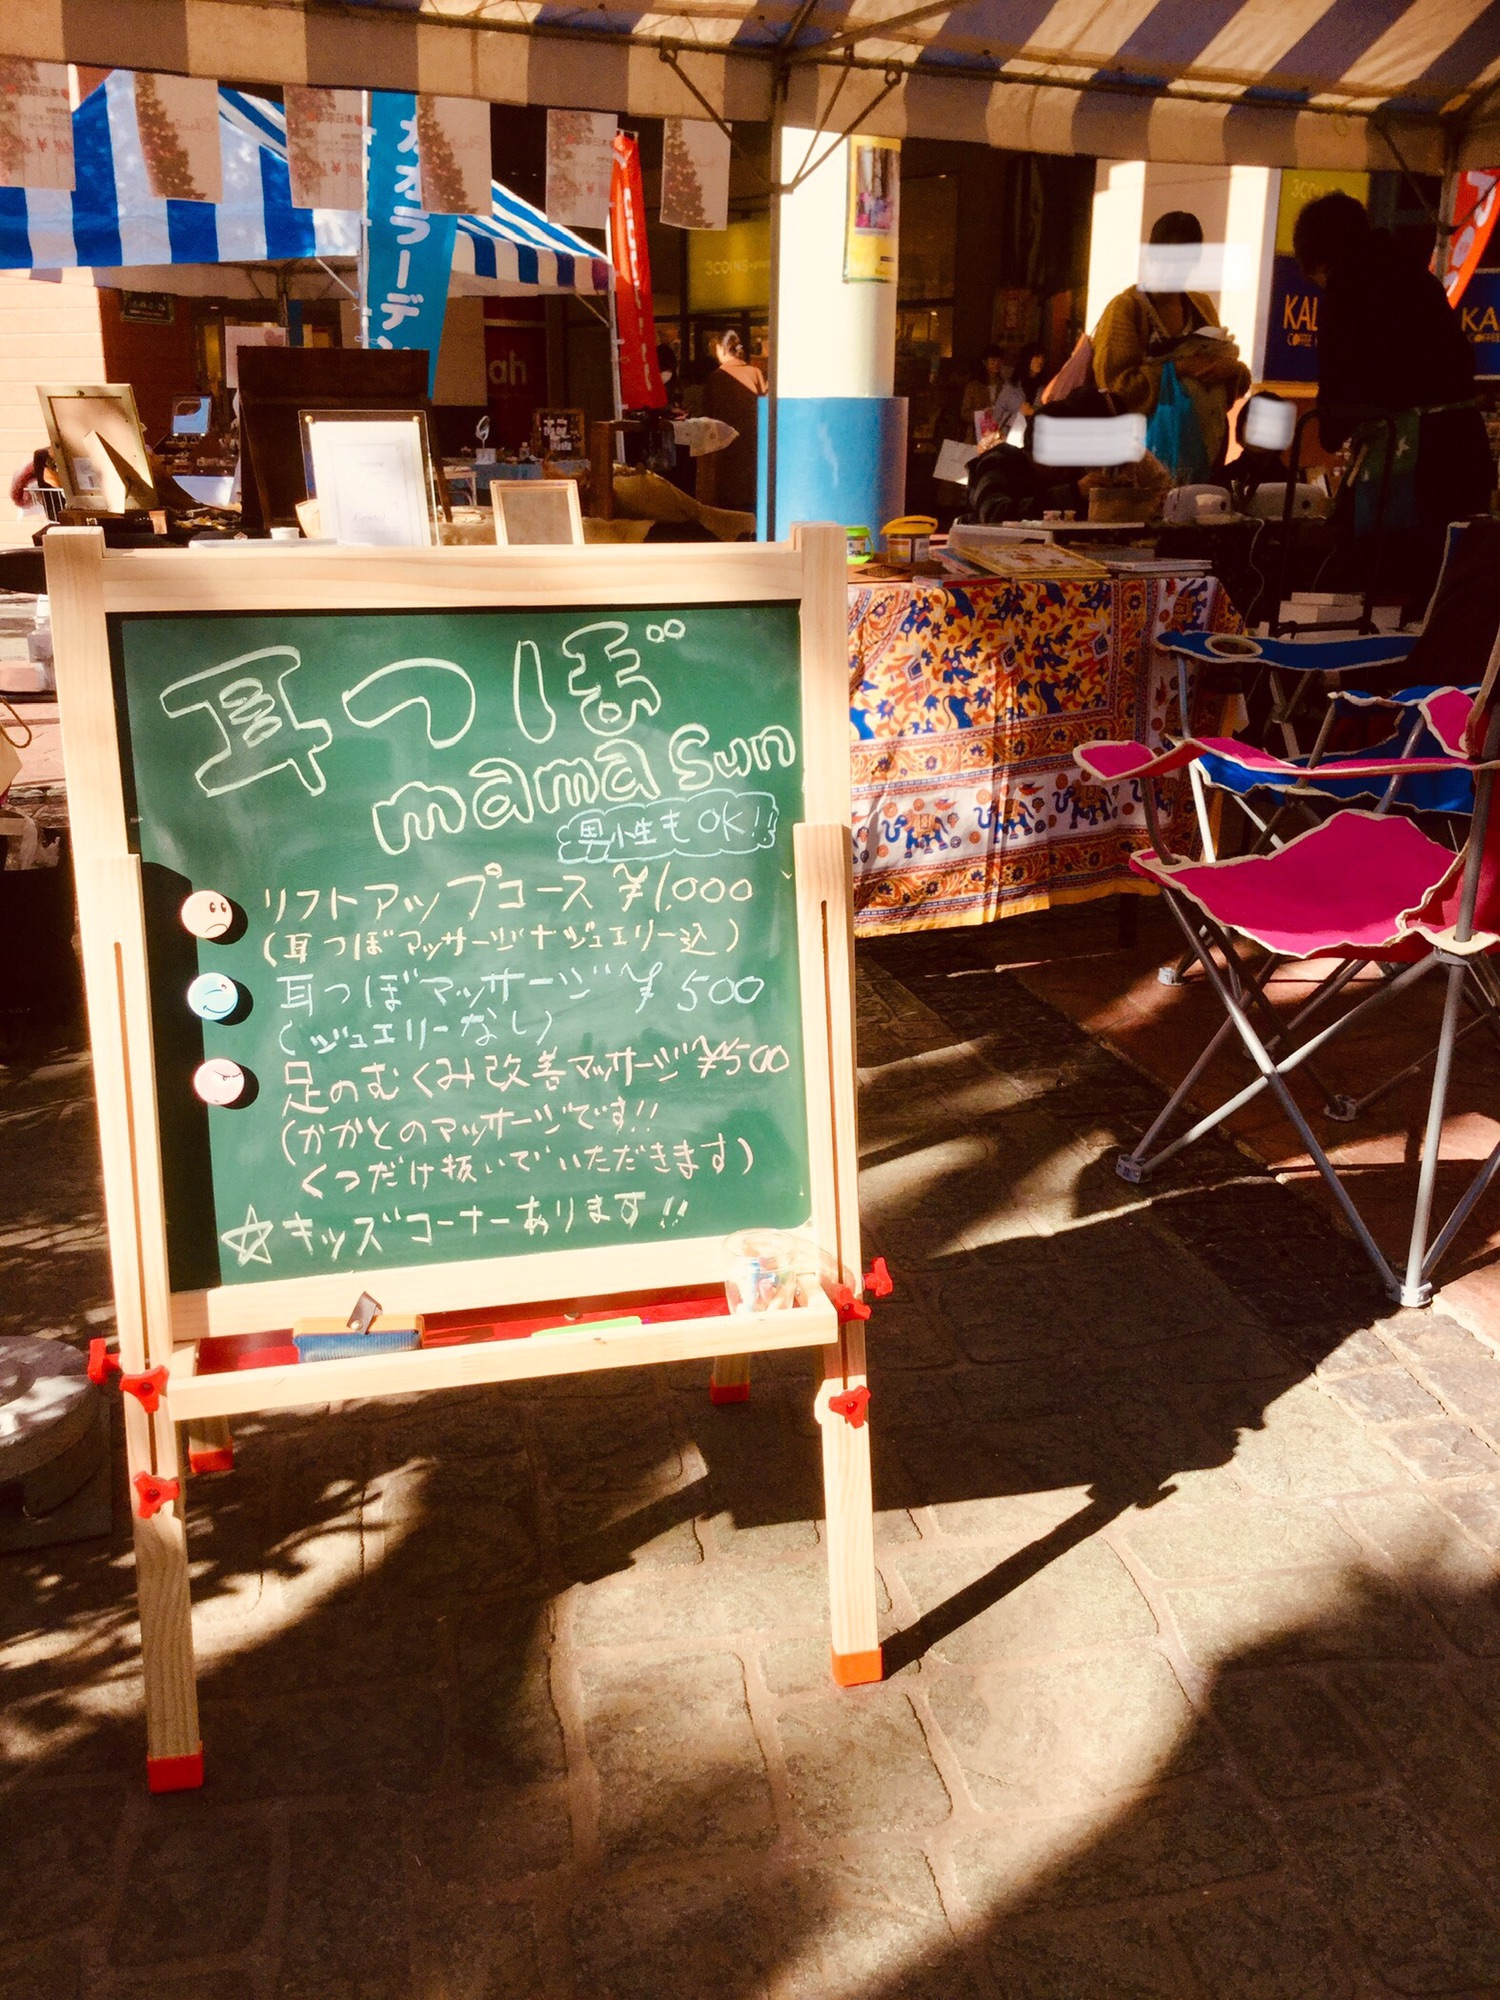 カラーデ
3COINS+plus
3COINS
ah
KAL
COFFEE
KA
COFFEE
耳つぼ
mama sun
男性もOK!!
リフトアップコース ¥1,000
(耳つぼマッサージ+ジュエリー込)
耳つぼマッサージ ¥500
(ジュエリーなし)
足のむくみ改善マッサージ ¥500
(かかとのマッサージです!!
くつだけ抜いでいただきます)
☆キッズコーナーあります!!